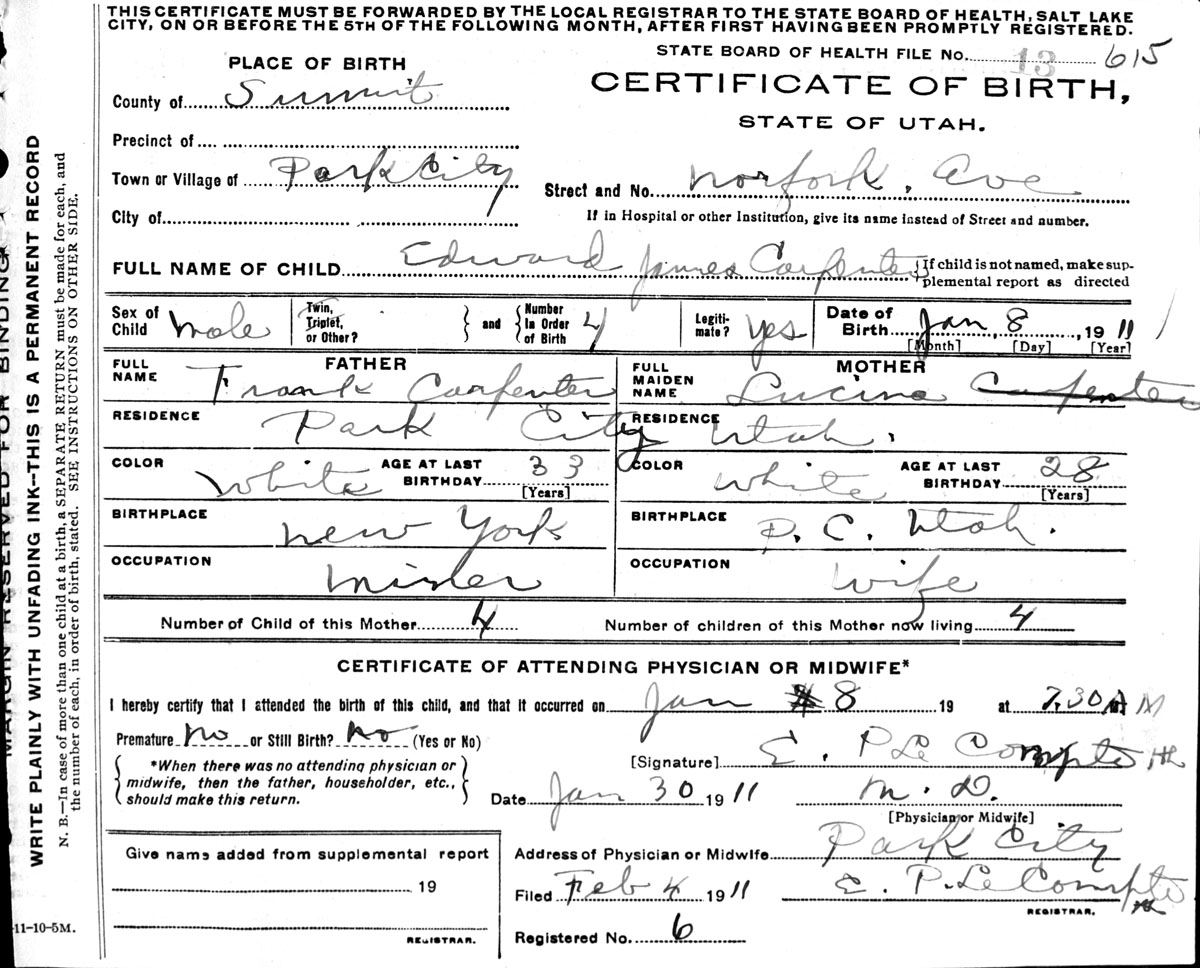 THIS CERTIFICATE MUST BE FORWARDED BY THE LOCAL REGISTRAR TO THE STATE BOARD OF HEALTH, SALT LAKE
CITY, ON OR BEFORE THE 5TH OF THE FOLLOWING MONTH, AFTER FIRST HAVING BEEN PROMPTLY REGISTERED.
STATE BOARD OF HEALTH FILE No. 13 615
PLACE OF BIRTH
CERTIFICATE OF BIRTH,
STATE OF UTAH.
County of Summit
Precinct of
Town or Village of Park City
Street and No. Norfork. Ave
City of
If in Hospital or other Institution, give its name instead of Street and number.
FULL NAME OF CHILD Edward James Carpenter
{If child is not named, make sup-
plemental report as directed
Sex of Child Male
Twin, Triplet, or Other?
and
Number In Order of Birth 4
Legiti-mate? Yes
Date of Birth Jan, 8, 1911
[Month] [Day] [Year]
FATHER
FULL NAME Frank Carpenter
MOTHER
FULL MAIDEN NAME Lucina Carpenter
RESIDENCE Park City
RESIDENCE Utah.
COLOR White
AGE AT LAST BIRTHDAY 33
[Years]
COLOR White
AGE AT LAST BIRTHDAY 28
[Years]
BIRTHPLACE New York
BIRTHPLACE P. C. Utah.
OCCUPATION Miner
OCCUPATION Wife
Number of Child of this Mother 4
Number of children of this Mother now living 4
CERTIFICATE OF ATTENDING PHYSICIAN OR MIDWIFE*
I hereby certify that I attended the birth of this child, and that it occurred on Jan 8 19 at 7.30 A M
Premature No or Still Birth? No (Yes or No)
*When there was no attending physician or
midwife, then the father, householder, etc.,
should make this return.
[Signature] E. P Le Compte
Date Jan 30 1911
M. D.
[Physician or Midwife]
Give name added from supplemental report
19
REGISTRAR.
Address of Physician or Midwife Park City
Filed Feb 4 1911
E. P. Le Compte
REGISTRAR.
Registered No. 6
11-10-5M.
MARGIN RESERVED FOR BINDING
WRITE PLAINLY WITH UNFADING INK--THIS IS A PERMANENT RECORD
N. B.—In case of more than one child at a birth, a SEPARATE RETURN must be made for each, and
the number of each, in order of birth, stated. SEE INSTRUCTIONS ON OTHER SIDE.